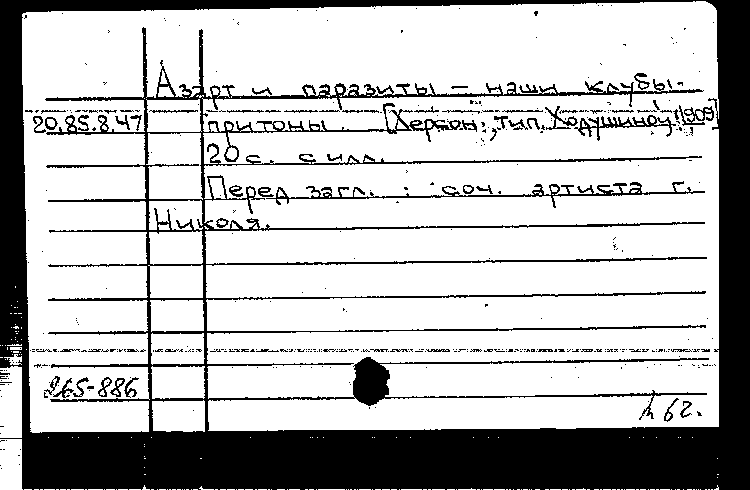 Азарт и паразиты - наши клубы-
20.85.8.47 притоны. [Херсон, тип. Ходушиной, 1909]
20 с. с илл.
Перед загл.: соч. артиста г.
Николя.
265-886
62.